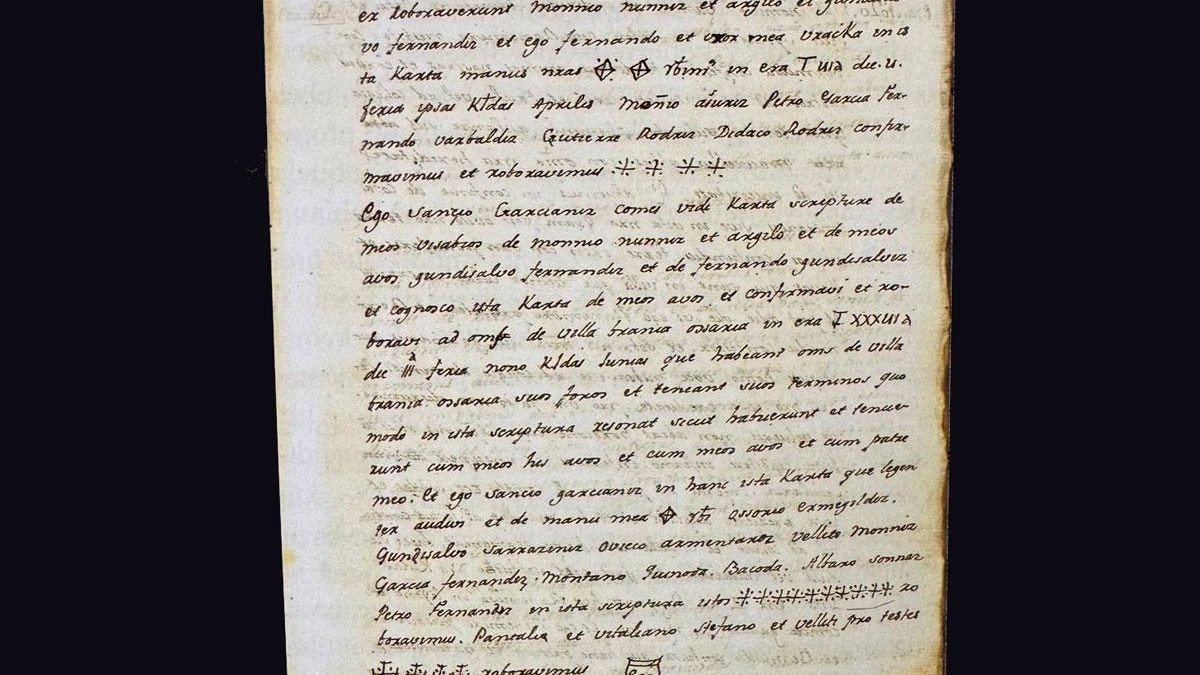 ex roboraverunt monnio nunniz et argilo et gundisal
vo fernandiz et ego fernando et uxor mea vracka in is
ta Karta manus nras in era T uia die .u.
feria ipsas Kldas Aprilis Monnio Petro Garcia Fer-
nando varbaldiz Gutierre Rodriz Didaco Rodriz confir-
mavimus et roboravimus
Ego Sanzio Garcianiz comes vidi Karta scripture de
meos visabios de monnio nunniz et argilo et de meos
avos gundisalvo fernandiz et de fernando gundisalviz
et cognosco ista Karta de meos avos et confirmavi et ro-
boravi ad oms de villa brania ossaria in era T XXXuia
die III feria nono Kldas Iunias que habeant oms de villa
brania ossaria suos foros et teneant suos terminos quo
modo in ista scriptura resonat sicut habuerunt et tenue-
runt cum meos bis avos et cum meos avos et cum patre
meo. Et ego Sancio garcianiz in hanc ista Karta que legen
ter audivi et de manu mea Ossorio Ermegildiz.
Gundisalvo Sarraziniz Ovieco armentariz vellito monniz
Garcia fernandiz. Montano Bacoda. Albaro sonnaz
Petro Fernandiz in ista scriptura istos ro
boravimus. Pantalia et vitaliano Stefano et velliti pro testes
roboravimus